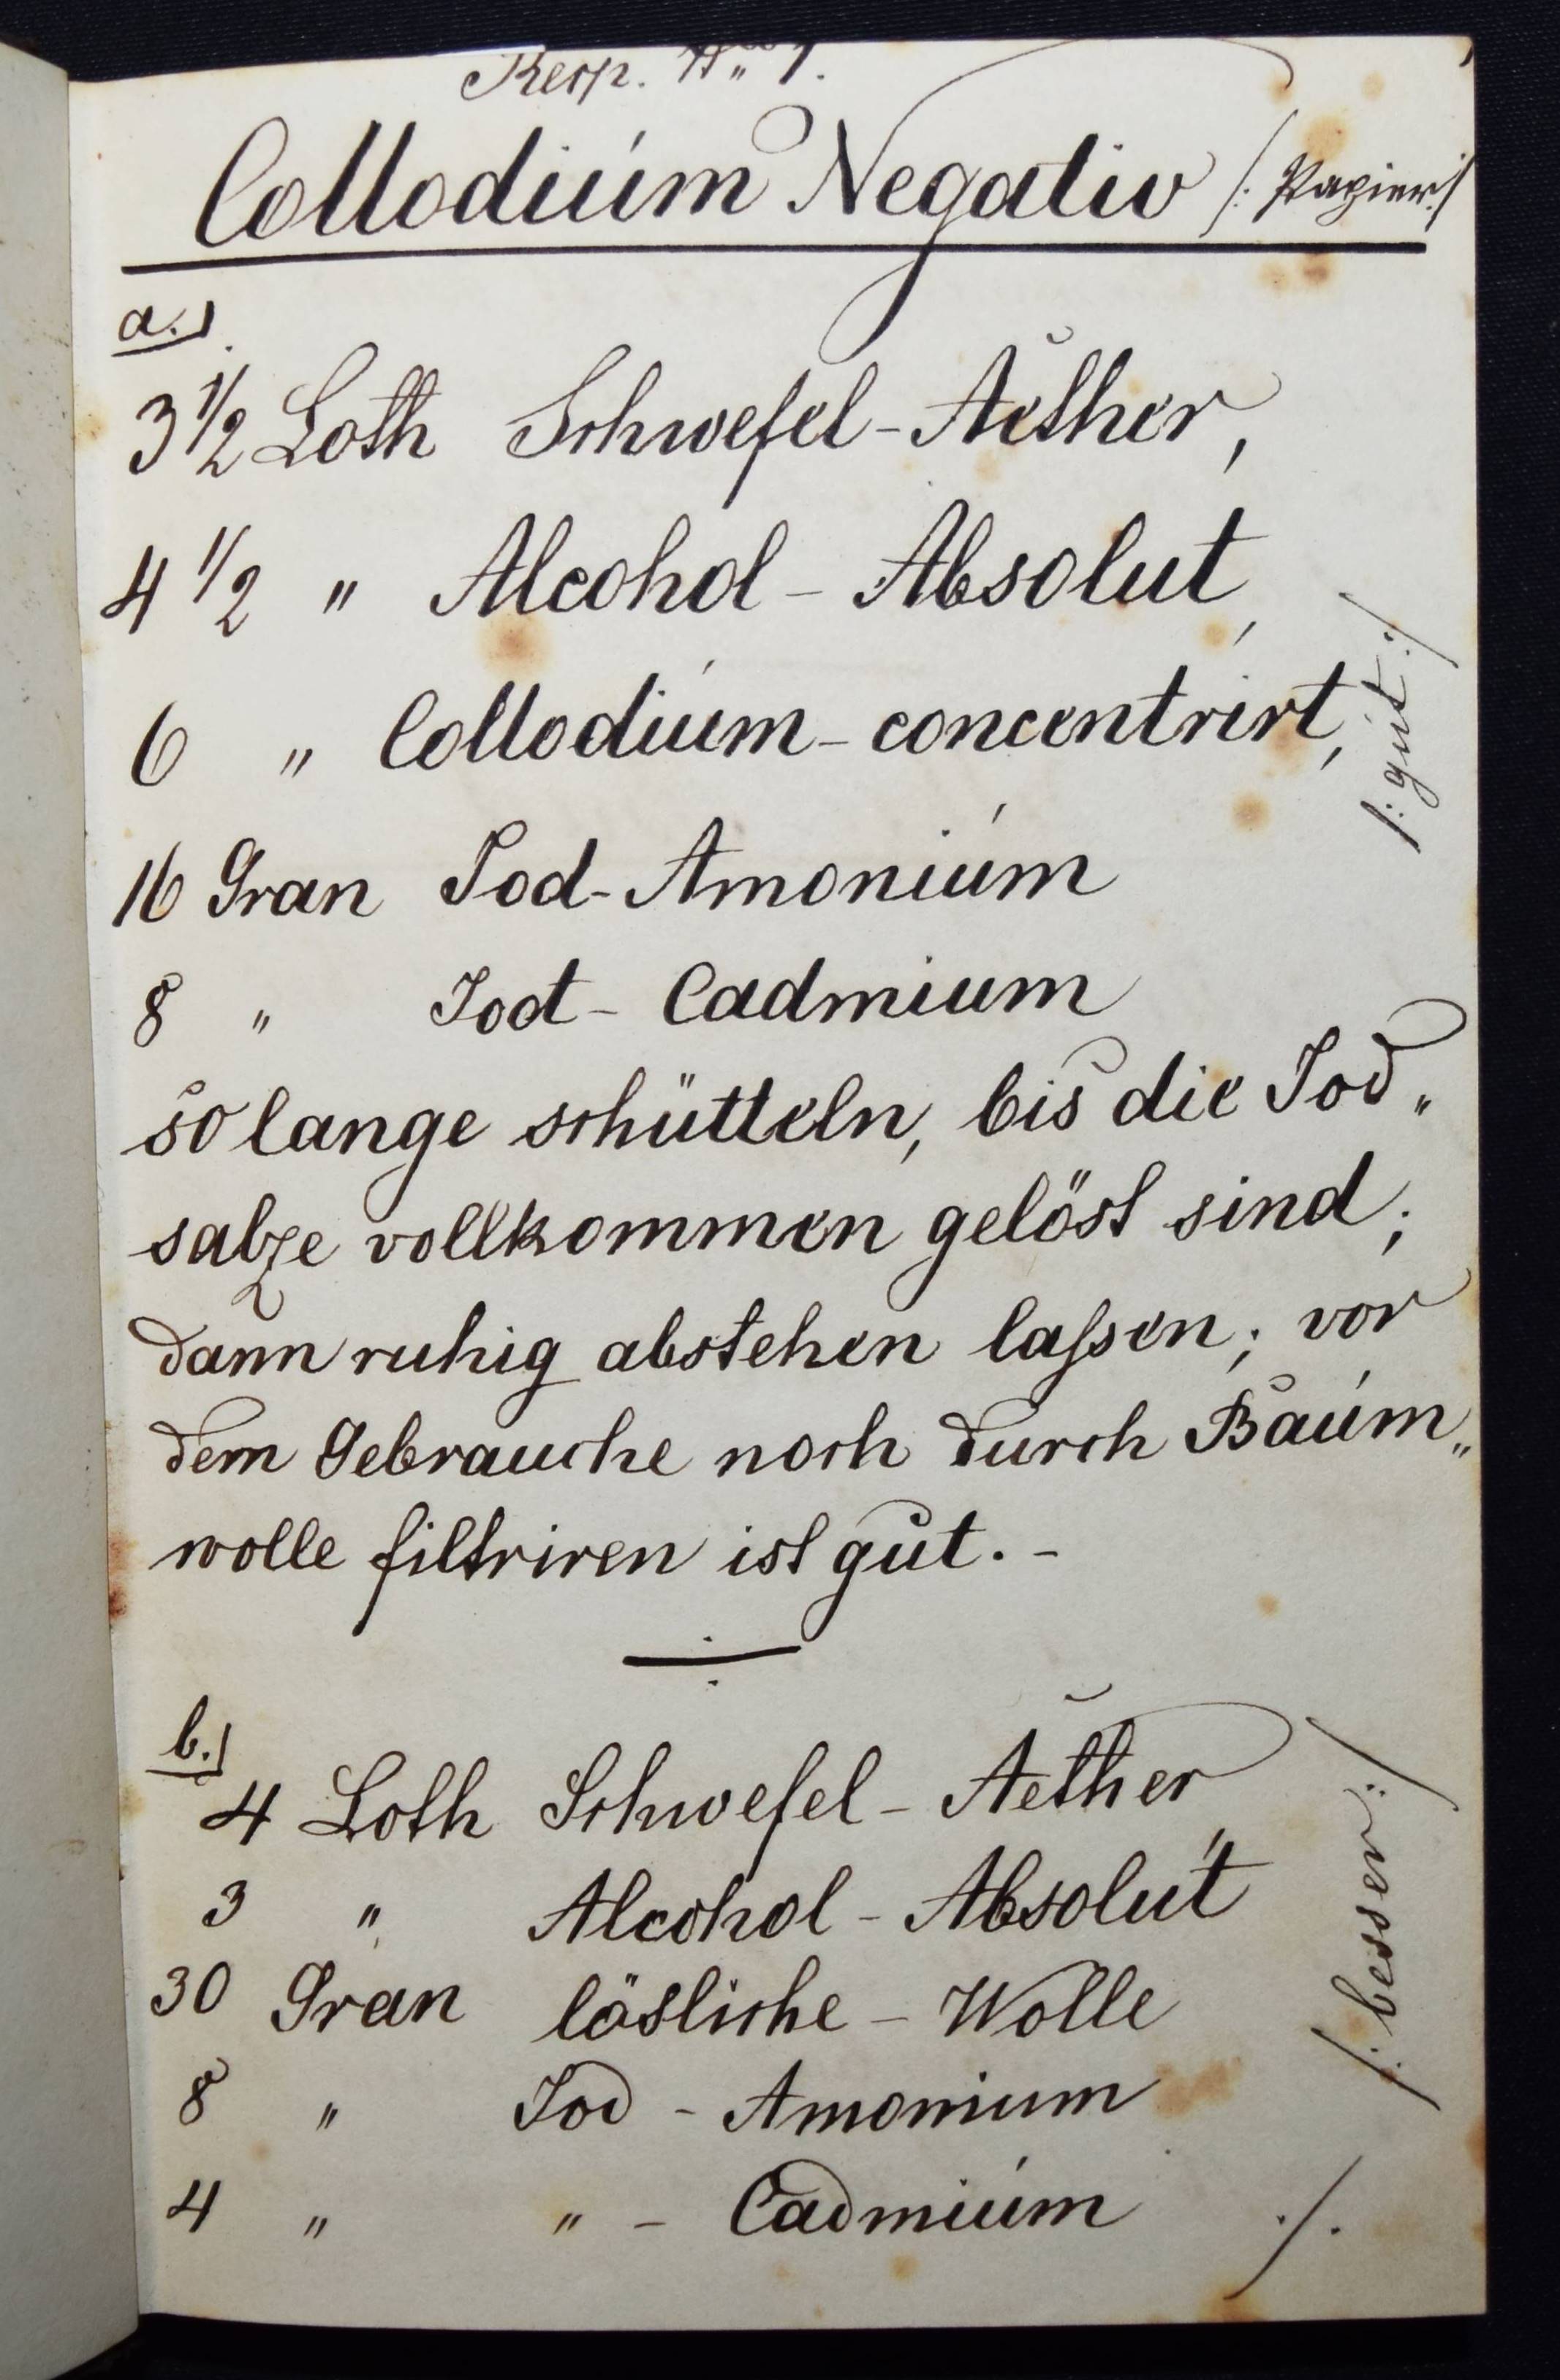 Resp. No 1.
Collodium Negativ /: Papier :/
a.)
3 1/2 Loth Schwefel-Aether,
4 1/2 " Alcohol - Absolut,
6 " Collodium - concentrirt,
/: gut :/
16 Gran Jod-Amonium
8 " Jod - Cadmium
so lange schütteln, bis die Jod„
salze vollkommen gelöst sind;
dann ruhig abstehen laſsen; vor
dem Gebrauche noch durch Baum„
wolle filtriren ist gut. -
b.)
4 Loth Schwefel - Aether,
3 " Alcohol - Absolut
30 Gran lösliche - Wolle
8 " Jod - Amonium
4 " " - Cadmium ./.
/: besser :/